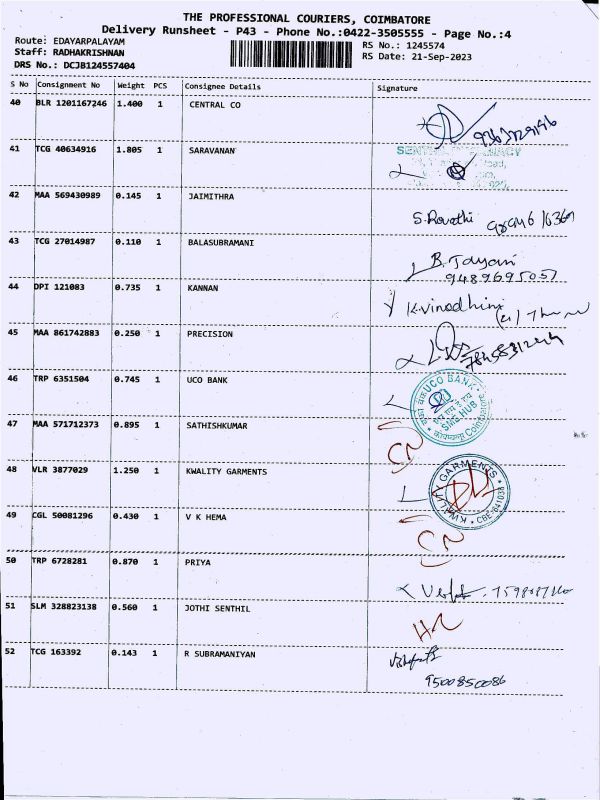 THE PROFESSIONAL COURIERS, COIMBATORE
Delivery Runsheet - P43 - Phone No.:0422-3505555 - Page No.:4
Route: EDAYARPALAYAM
Staff: RADHAKRISHNAN
DRS No.: DCJB124557404
RS No.: 1245574
RS Date: 21-Sep-2023
S No Consignment No Weight PCS Consignee Details Signature
40 BLR 1201167246 1.400 1 CENTRAL CO
41 TCG 40634916 1.805 1 SARAVANAN
42 MAA 569430989 0.145 1 JAIMITHRA
S. Revathi
43 TCG 27014987 0.110 1 BALASUBRAMANI
B. Jayani
9489695057
44 DPI 121083 0.735 1 KANNAN
K.vinodhini
45 MAA 861742883 0.250 1 PRECISION
46 TRP 6351504 0.745 1 UCO BANK
UCO BANK
SME HUB
Coimbatore
47 MAA 571712373 0.895 1 SATHISHKUMAR
CN
48 VLR 3877029 1.250 1 KWALITY GARMENTS
KWALITY GARMENTS
CBE-641038
49 CGL 50081296 0.430 1 V K HEMA
CN
50 TRP 6728281 0.870 1 PRIYA
51 SLM 328823138 0.560 1 JOTHI SENTHIL
52 TCG 163392 0.143 1 R SUBRAMANIYAN
9500850086